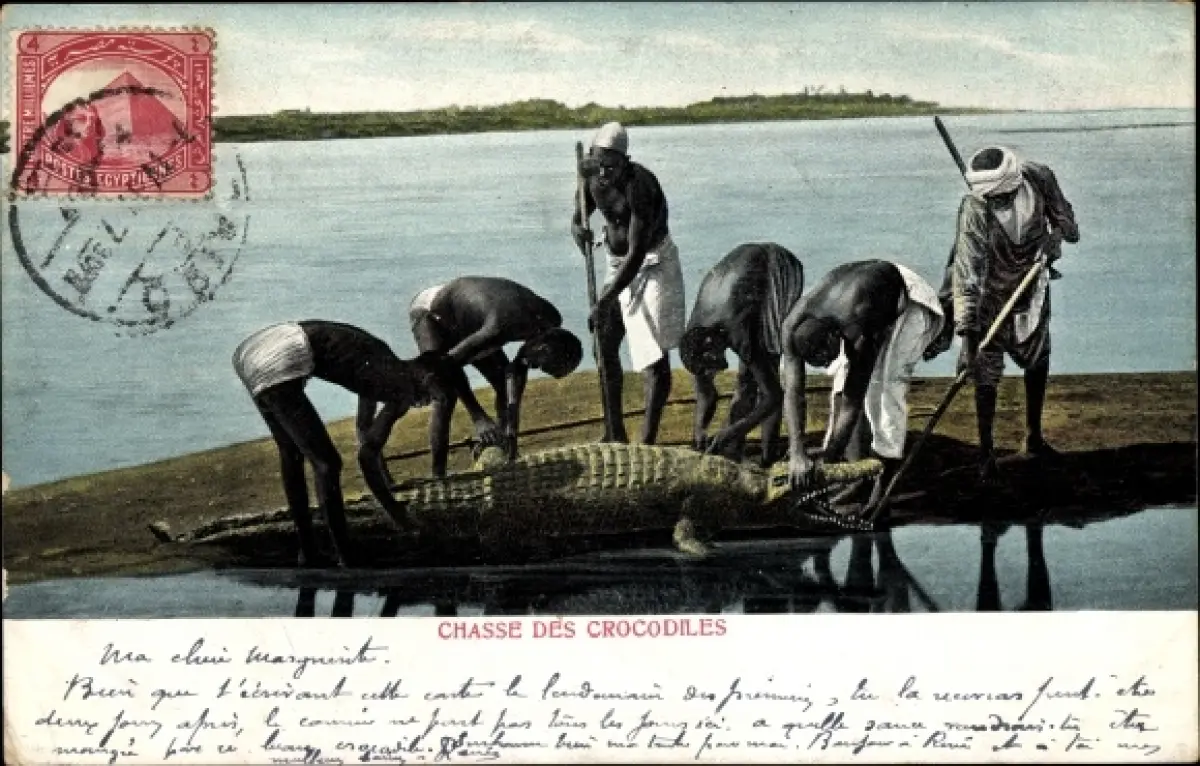 4 4
QUATRE MILLIEMES
POSTES EGYPTIENNES
CHASSE DES CROCODILES
Ma chère Marguerite.
Bien que t'écrivant cette carte le lendemain des premières, tu la recevras peut-être
deux jours après, le courrier ne part pas tous les jours ici. à quelle sauce voudrais-tu être
mangée par ce beau crocodile. Embrasse bien ma tante pour moi. Bonjour à René et à toi mes
meilleurs baisers